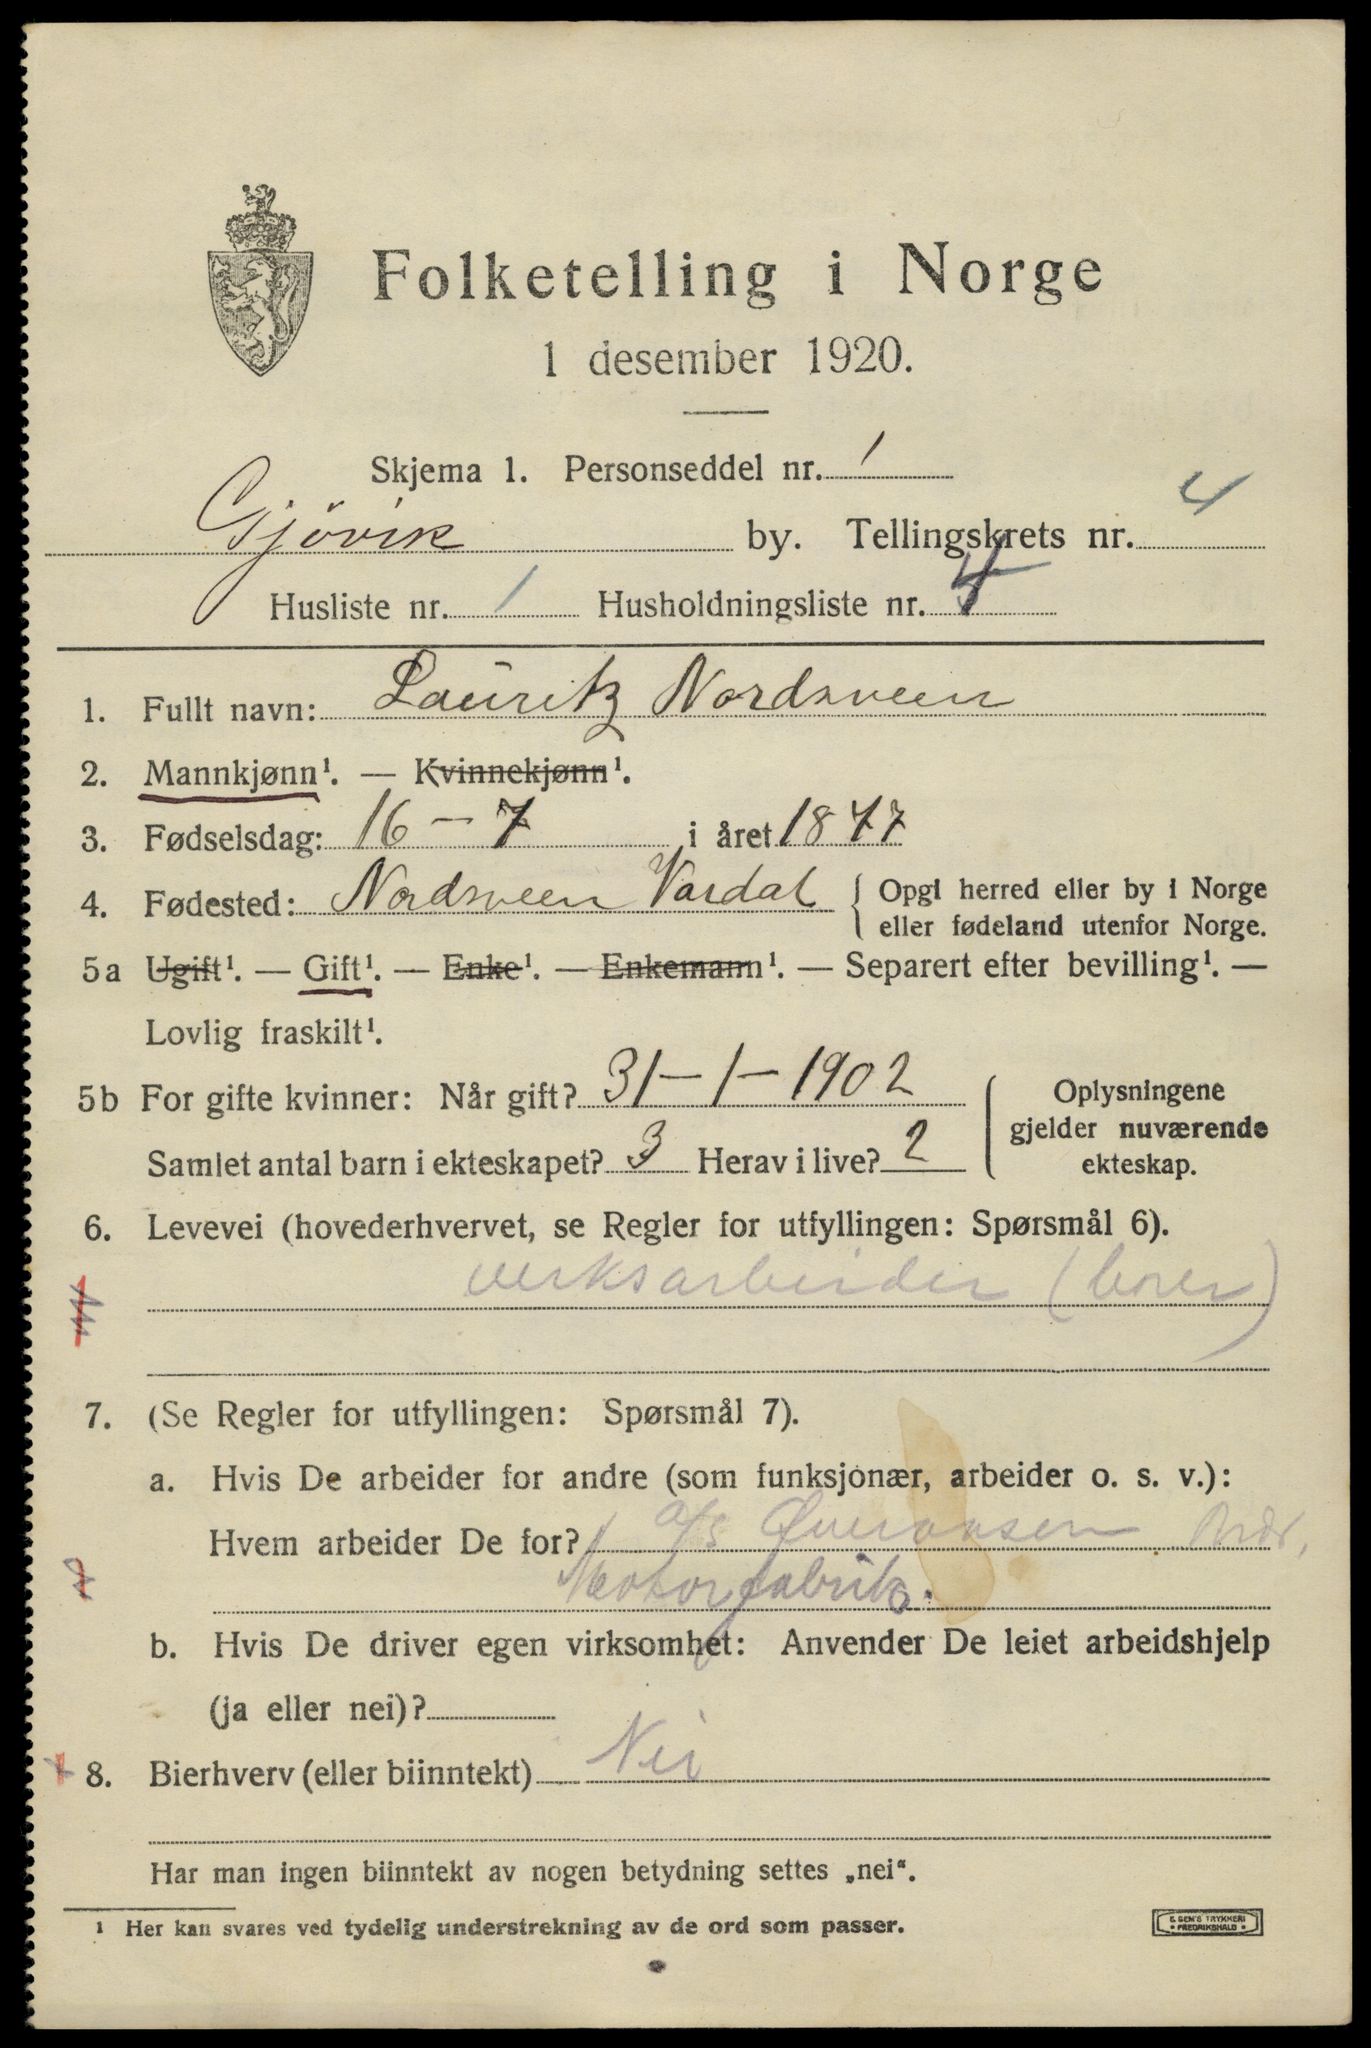 Folketelling i Norge
1 desember 1920.
Skjema 1. Personseddel nr. 1
Gjövik by. Tellingskrets nr. 4
Husliste nr. 1 Husholdningsliste nr. 4
1. Fullt navn: Lauritz Nordsveen
2. Mannkjønn¹. — Kvinnekjønn¹.
3. Fødselsdag: 16 – 7 i året 1877
4. Fødested: Nordsveen Vardal { Opgi herred eller by i Norge
eller fødeland utenfor Norge.
5a Ugift¹. — Gift¹. — Enke¹. — Enkemann¹. — Separert efter bevilling¹. —
Lovlig fraskilt¹.
5b For gifte kvinner: Når gift? 31 – 1 – 1902
Samlet antal barn i ekteskapet? 3 Herav i live? 2
Oplysningene
gjelder nuværende
ekteskap.
6. Levevei (hovederhvervet, se Regler for utfyllingen: Spørsmål 6).
verksarbeider (borer)
7. (Se Regler for utfyllingen: Spørsmål 7).
a. Hvis De arbeider for andre (som funksjonær, arbeider o. s. v.):
Hvem arbeider De for? A/S Brdr.
Motorfabrik.
b. Hvis De driver egen virksomhet: Anvender De leiet arbeidshjelp
(ja eller nei)?
8. Bierhverv (eller biinntekt) Nei
Har man ingen biinntekt av nogen betydning settes „nei“.
¹ Her kan svares ved tydelig understrekning av de ord som passer.
E. SEM'S TRYKKERI
* FREDRIKSHALD *